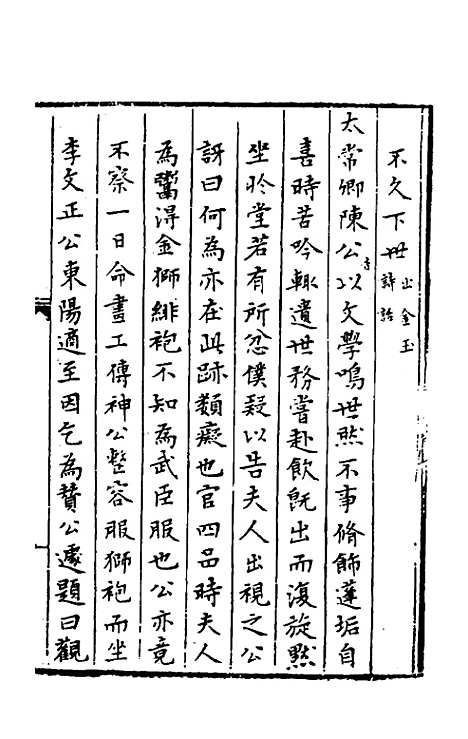 不久下世出金玉詩話
太常卿陳公音以文學鳴世然不事脩飾蓬垢自
喜時苦吟輒遺世務嘗赴飲旣出而復旋黙
坐於堂若有所忿僕疑以告夫人出視之公
訝曰何為亦在此跡類癡也官四品時夫人
為鬻得金獅緋袍不知為武臣服也公亦竟
不察一日命畫工傳神公整容服獅袍而坐
李文正公東陽適至因乞為賛公遽題曰觀